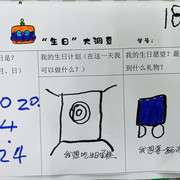 18
"生日"大调查
学号:
日是?
月、日)
我的生日计划(在这一天我
可以做什么?)
我的生日愿望?最
到什么礼物?
2020.
4
24
我想吃
我想要一